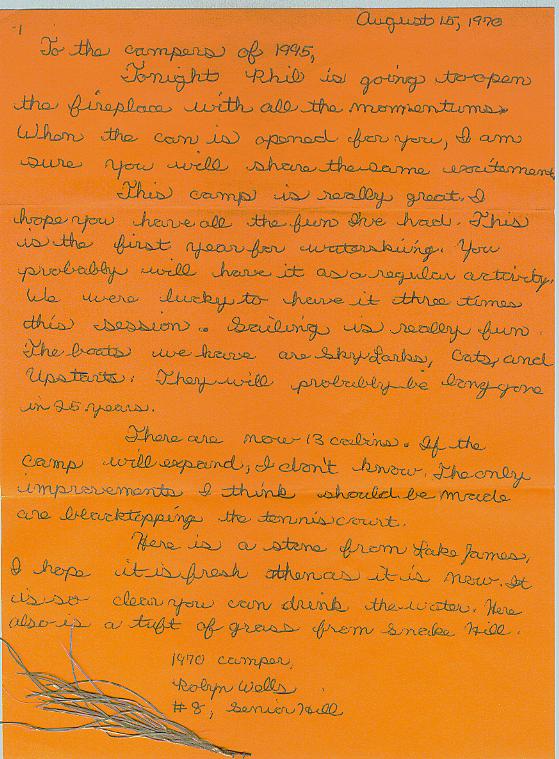 -1
August 15, 1970
To the campers of 1995,
Tonight Phil is going to open
the fireplace with all the momentums.
When the can is opened for you, I am
sure you will share the same excitement.
This camp is really great. I
hope you have all the fun I've had. This
is the first year for waterskiing. You
probably will have it as a regular activity.
We were lucky to have it three times
this session. Sailing is really fun.
The boats we have are Sky Larks, Cats, and
Upstarts. They will probably be long gone
in 25 years.
There are now 13 cabins. If the
camp will expand, I don't know. The only
improvements I think should be made
are blacktopping the tennis court.
Here is a stone from Lake James,
I hope it is fresh then as it is now. It
is so clear you can drink the water. Here
also is a tuft of grass from Snake Hill.
1970 camper,
Robyn Wells
#8, Senior Hill